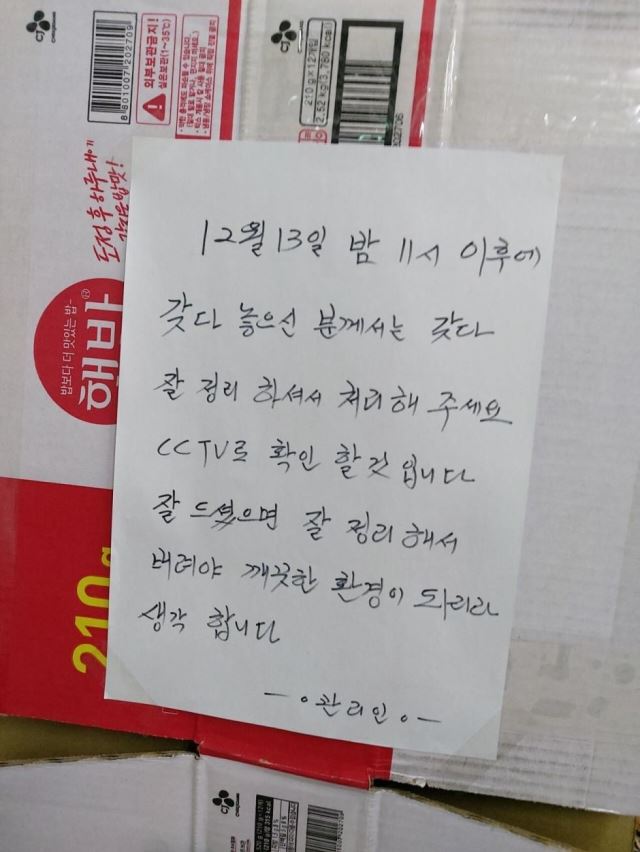 12월 13일 밤 11시 이후에
갖다 놓으신 분께서는 갖다
잘 정리 하셔서 처리해 주세요
CCTV로 확인 할것 입니다
잘 드셨으면 잘 정리해서
버려야 깨끗한 환경이 돠리라
생각 합니다
-∘관리인∘-
CJ
8801007202709
외부보관금지!
실온보관(1~35℃)
CJ
210 g×12개입
2.52 kg(3,780 kcal)
도정 후 하루내기
갓지은 밥맛!
밥보다 더 맛있는 밥-
햇반
210 g
CJ